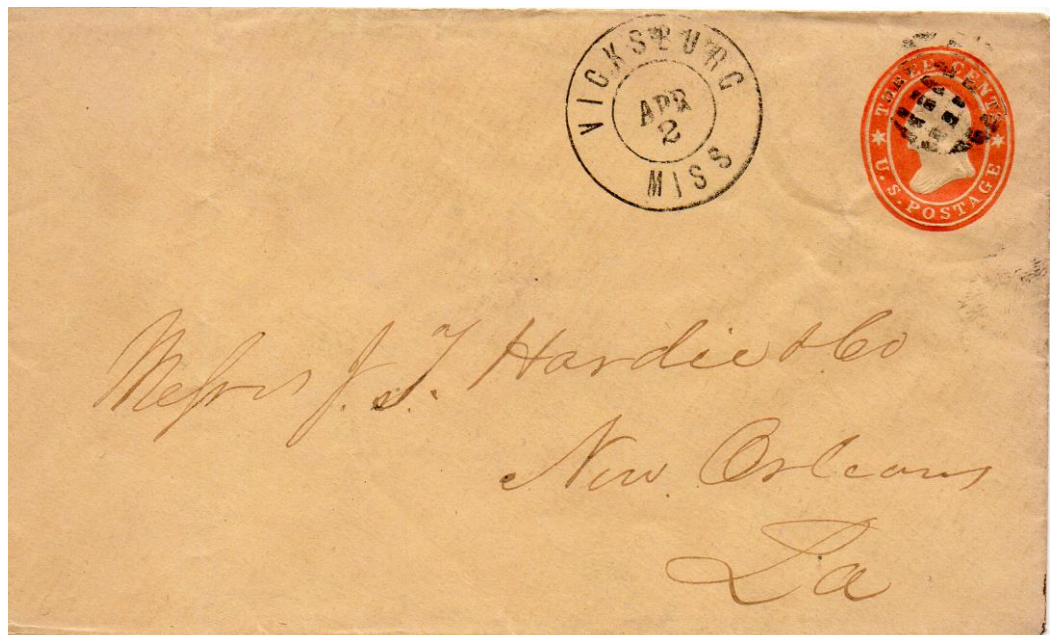 VICKSBURG
APR
2
MISS
THREE CENTS
U.S. POSTAGE
Messrs J. T. Hardie & Co
New Orleans
La